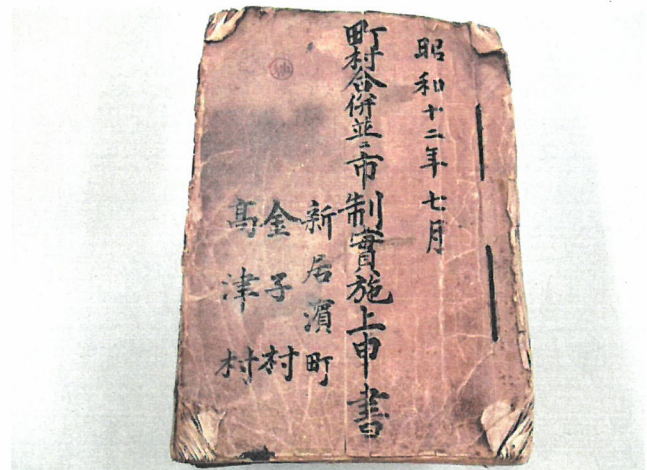 昭和十二年七月
町村合併並ニ市制實施上申書
新居濱町
金子村
髙津村